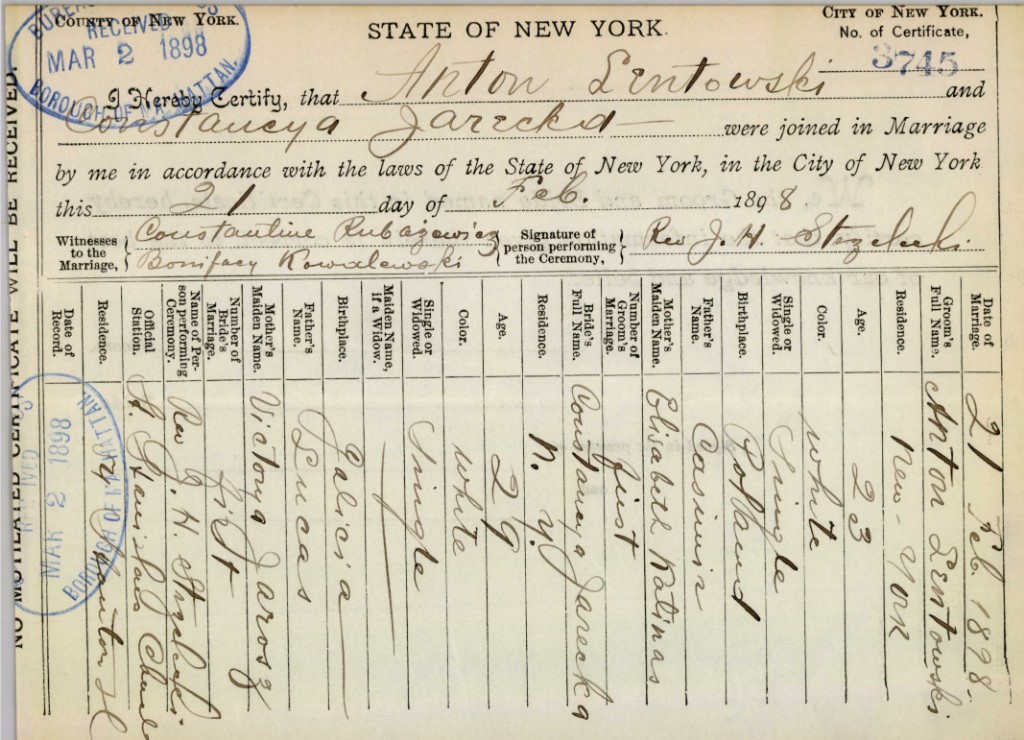 COUNTY OF NEW YORK.
STATE OF NEW YORK.
CITY OF NEW YORK.
No. of Certificate,
3745
RECEIVED
MAR 2 1898
BOROUGH OF MANHATTAN.
I Hereby Certify, that Anton Lentowski and
Constancya Jarecka were joined in Marriage
by me in accordance with the laws of the State of New York, in the City of New York
this 21 day of Feb. 1898
Witnesses to the Marriage, Constantine Rubazewicz
Bonifacy Kowalewski
Signature of person performing the Ceremony, Rev J. H. Strzelecki
NO MUTILATED CERTIFICATE WILL BE RECEIVED.
Date of Marriage. 21 Feb. 1898
Groom's Full Name. Anton Lentowski
Residence. New-York
Age. 23
Color. white
Single or Widowed. Single
Birthplace. Poland
Father's Name. Casimir
Mother's Maiden Name. Elisabeth Katinas
Number of Groom's Marriage. first
Bride's Full Name. Constancya Jarecka
Residence. N. Y.
Age. 29
Color. white
Single or Widowed. Single
Maiden Name, if a Widow.
Birthplace. Galicia
Father's Name. Lucas
Mother's Maiden Name. Victorya Jarosz
Number of Bride's Marriage. first
Name of Person performing Ceremony. Rev J. H. Strzelecki
Official Station. St. Stanislaus
Residence.
Date of Record.
RECEIVED
MAR 2 1898
BOROUGH OF MANHATTAN